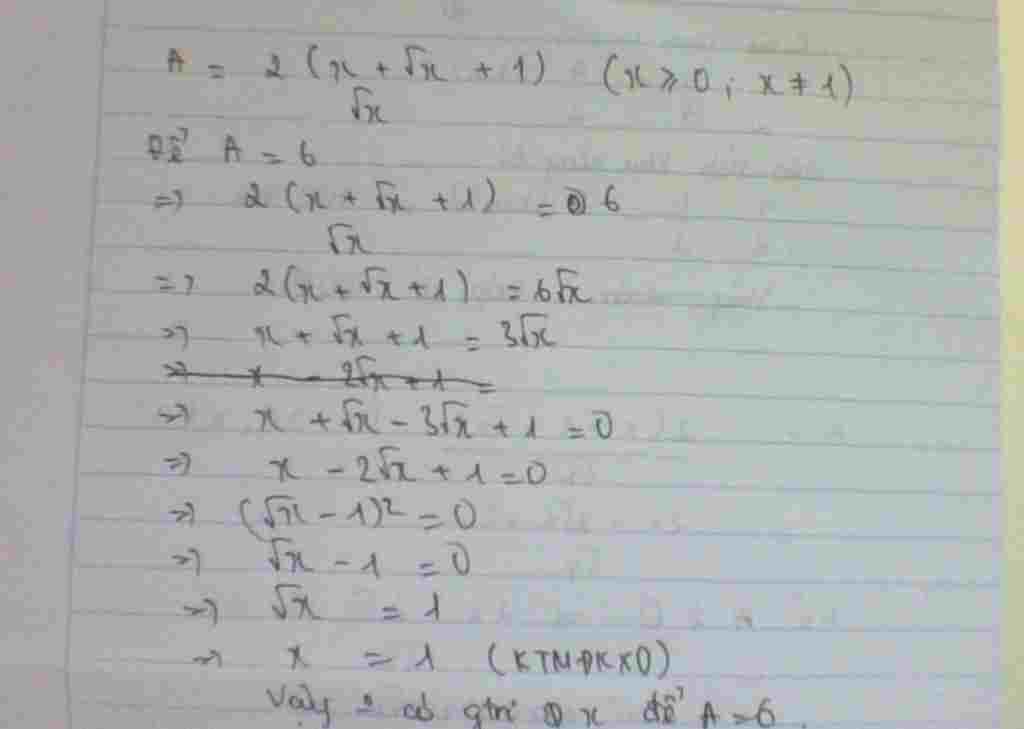 A = 2 (x + √x + 1) (x ⩾ 0 ; x ≠ 1)
√x
Để A = 6
=> 2 (x + √x + 1) = 6
√x
=> 2(x + √x + 1) = 6√x
=> x + √x + 1 = 3√x
=> x - 2√x + 1 =
=> x + √x - 3√x + 1 = 0
=> x - 2√x + 1 = 0
=> (√x - 1)² = 0
=> √x - 1 = 0
=> √x = 1
=> x = 1 (KTMĐKXĐ)
Vậy có gtrị x để A = 6